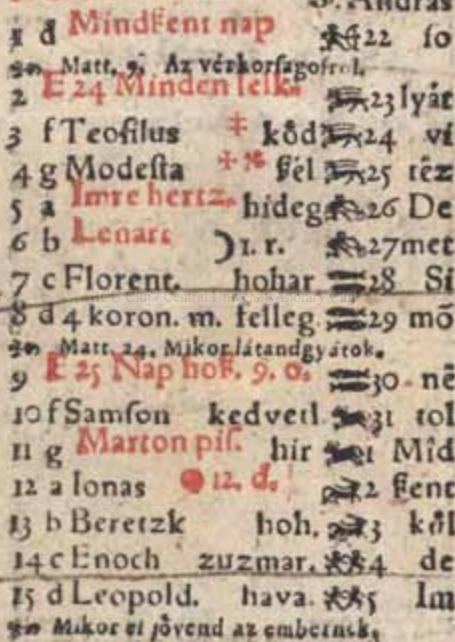 1 d Mindſent nap 22 ſo
Matt. 9. Az vérkorſagoſrol.
2 E 24 Minden lelk. 23 lyát
3 f Teofilus ‡ kôd 24 vi
4 g Modeſta ſél 25 têz
5 a Imre hertz. hideg 26 De
6 b Lenart ☽ 1. r. 27 met
7 c Florent. hohar 28 Si
8 d 4 koron. m. felleg. 29 mô
Matt. 24. Mikor látandgyátok.
9 E 25 Nap hoſ. 9. o. 30 nê
10 f Samſon kedvetl. 31 tol
11 g Marton piſ. hir 1 Mîd
12 a Ionas 12. d. 2 ſent
13 b Beretzk hoh. 3 kôl
14 c Enoch zuzmar. 4 de
15 d Leopold. hava. 5 Im
Mikor el jôvend az embernek.